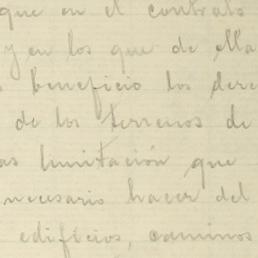 que en el contrato
y en los que de ella
beneficio los dere
de los terrenos de
as limitación que
necesario hacer del
edificios, caminos